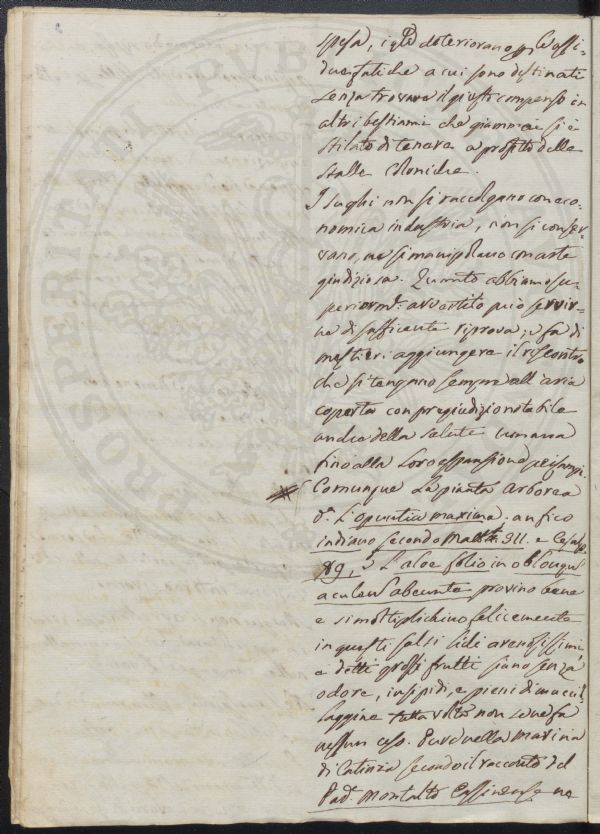 spesa, i q.li deteriorano p le assi-
due fatiche a cui sono destinati
senza trovare il giusto compenso in
altri bestiami che giammai si è
stilato di tenere a profitto delle
stalle coloniche.
I sughi non si raccolgono con eco-
nomica industria, non si conser-
vano, ne si manipolano con arte
giudiziosa. Quanto abbiamo su-
periorm.e avvertito può servir-
ne di sufficente riprova; e fa di
mestieri aggiungere il riscontro
che si tengano sempre all'aria
coperta con pregiudizio notabile
anche della salute umana
fino alla loro espansione pei campi
Comunque la pianta Arborea
d.a L'opuntia maxima. an fico
indiano secondo Matth. 311. e Cesalp.
L'aloe folio in oblongu
aculeu abeunte provino bene
e si moltiplichino felicemente
in questi salsi lidi arenosissimi
e detti grossi frutti siano senza
odore, insipidi, e pieni di muccil-
laggine tutta volta non se ne fa
nessun caso. Pure nella marina
di Catania secondo il racconto del
Pad. Montalto Cassinense ne
PROSPERITATI PVB